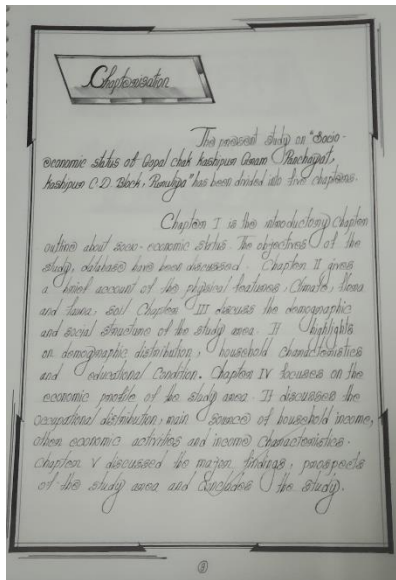 Chapterisation
The present study on "Socio-
economic status of Gopal chak Kashipur Gram Panchayat,
Kashipur C.D. Block, Purulia" has been divided into five chapters.
Chapter I is the introductory chapter
outline about socio-economic status. The objectives of the
study, database have been discussed. Chapter II gives
a brief account of the physical features, Climate, flora
and fauna, soil Chapter III discuss the demographic
and social structure of the study area. It highlights
on demographic distribution, household characteristics
and educational Condition. Chapter IV focuses on the
economic profile of the study area. It discusses the
occupational distribution, main source of household income,
other economic activities and income characteristics.
Chapter V discussed the major findings, prospects
of the study area and Concludes the study.